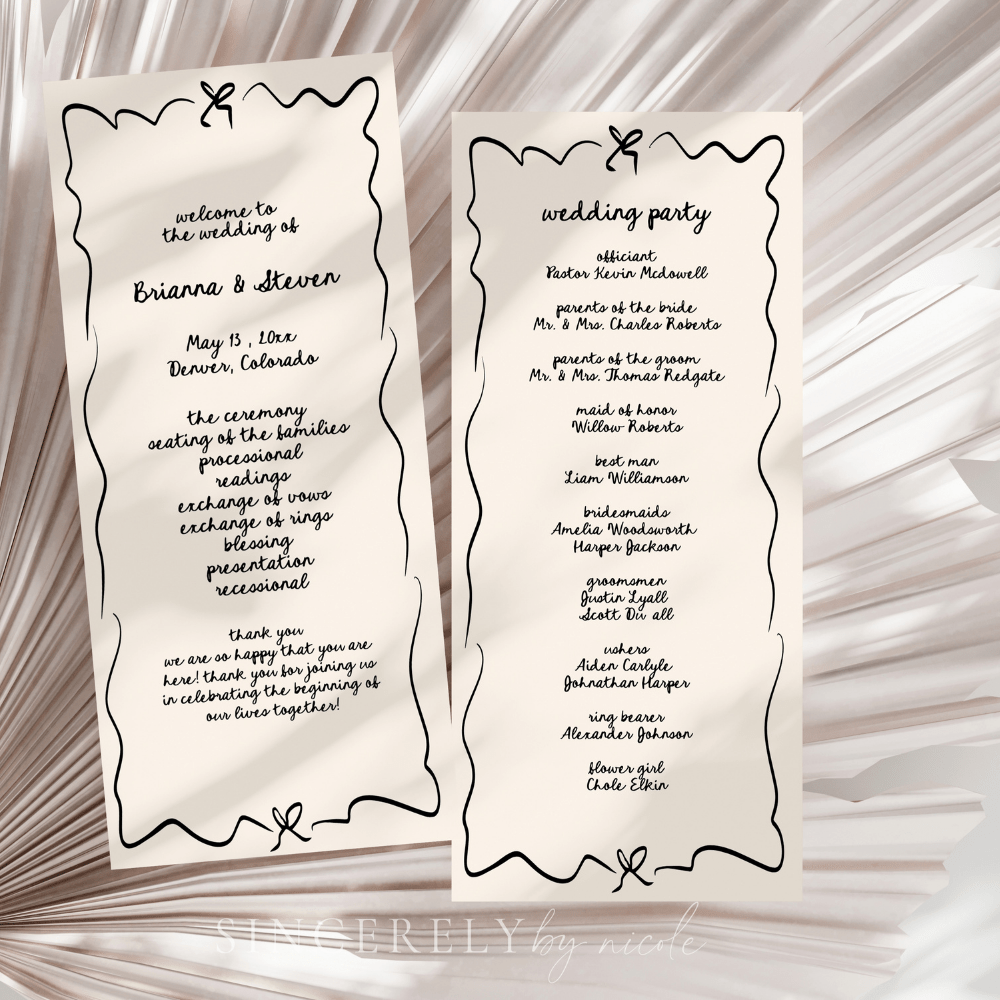 welcome to
the wedding of
Brianna & Steven
May 13, 20xx
Denver, Colorado
the ceremony
seating of the families
processional
readings
exchange of vows
exchange of rings
blessing
presentation
recessional
thank you
we are so happy that you are
here! thank you for joining us
in celebrating the beginning of
our lives together!
wedding party
officiant
Pastor Kevin Mcdowell
parents of the bride
Mr. & Mrs. Charles Roberts
parents of the groom
Mr. & Mrs. Thomas Redgate
maid of honor
Willow Roberts
best man
Liam Williamson
bridesmaids
Amelia Woodsworth
Harper Jackson
groomsmen
Justin Lyall
Scott Du all
ushers
Aiden Carlyle
Johnathan Harper
ring bearer
Alexander Johnson
flower girl
Chole Elkin
SINCERELY by nicole